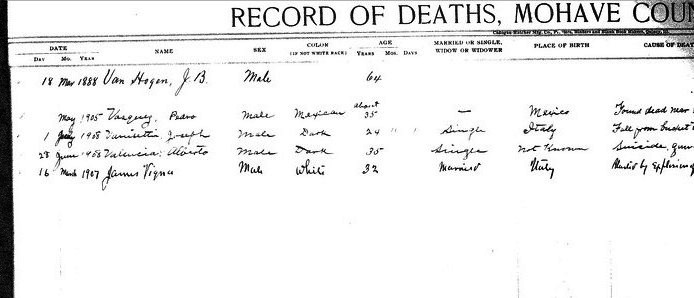 RECORD OF DEATHS, MOHAVE COU
DATE
DAY MO. YEAR NAME SEX COLOR (IF NOT WHITE RACE) AGE YEARS MOS. DAYS MARRIED OR SINGLE, WIDOW OR WIDOWER PLACE OF BIRTH CAUSE OF DEA
18 Mar 1888 Van Hogen, J. B. Male 64
May 1905 Vasquez, Pedro Male Mexican about 35 — Mexico Found dead near
1 July 1908 Joseph Male Dark 24 " " Single Italy Fall from bucket
28 June 1908 Valencia, Alberto Male Dark 35 Single not Known Suicide, gun
16 March 1907 James Vigna Male White 32 Married Italy by Explosion of